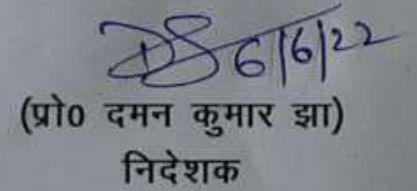 6/6/22
(प्रो0 दमन कुमार झा)
निदेशक